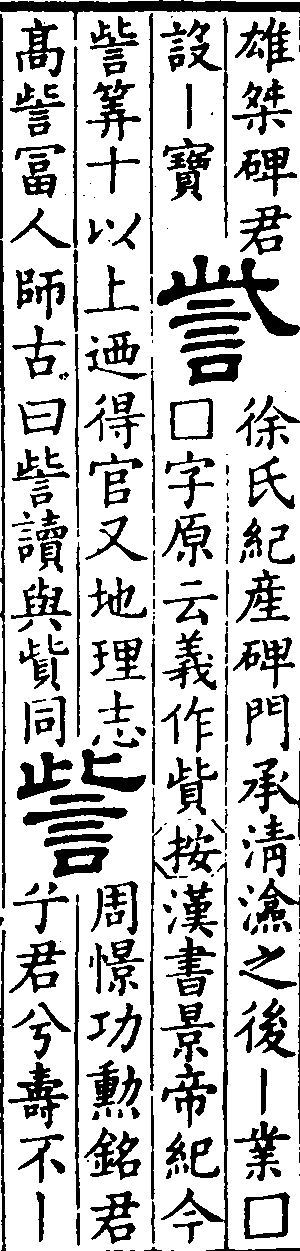 雄桀碑君
設丨寶
訾
徐氏紀產碑門承清之後丨業□
□字原云義作貲按漢書景帝紀今
訾筭十以上迺得官又地理志
高訾冨人師古曰訾讀與貲同
訾
周憬功勳銘君
乎君兮壽不丨